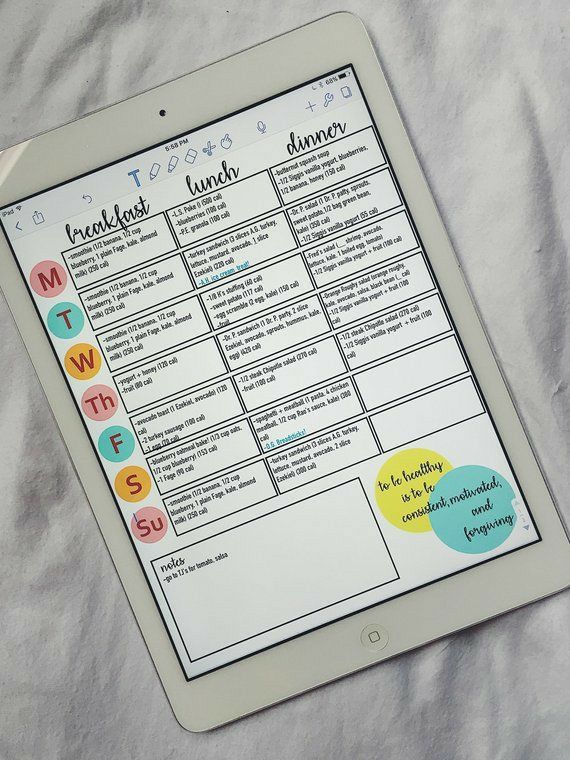 iPad
5:58 PM
68%
T
breakfast
lunch
dinner
M
-smoothie (1/2 banana, 1/2 cup
blueberry, 1 plain Fage, kale, almond
milk) (250 cal)
-L.S. Poke (500 cal)
-blueberries (100 cal)
-P.E. granola (100 cal)
-butternut squash soup
-1/2 Siggis vanilla yogurt, blueberries,
1/2 banana, honey (150 cal)
T
-smoothie (1/2 banana, 1/2 cup
blueberry, 1 plain Fage, kale, almond
milk) (250 cal)
-turkey sandwich (3 slices A.G. turkey,
lettuce, mustard, avocado, 2 slice
Ezekiel) (220 cal)
ice cream treat!
-Dr. P. salad (1 Dr. P. patty, sprouts,
sweet potato, 1/2 bag green bean,
kale) (350 cal)
-1/2 Siggis vanilla yogurt (55 cal)
W
-smoothie (1/2 banana, 1/2 cup
blueberry, 1 plain Fage, kale, almond
milk) (250 cal)
-1/8 K's stuffing (60 cal)
-sweet potato (117 cal)
-egg scramble (2 egg, kale) (150 cal)
-fruit
-Fred's salad ( shrimp, avocado,
lettuce, kale, 1 boiled egg, tomato)
-1/2 Siggis vanilla yogurt + fruit (100
cal)
Th
-yogurt + honey (120 cal)
-fruit (80 cal)
-Dr. P. sandwich (1 Dr. P. patty, 2 slice
Ezekiel, avocado, sprouts, hummus, kale,
egg) (420 cal)
-Orange Roughy salad (orange roughy,
kale, avocado, black bean
-1/2 Siggis vanilla yogurt + fruit (100
cal)
F
-avocado toast (1 Ezekiel, avocado) (120
cal)
-2 turkey sausage (100 cal)
-1 egg (70 cal)
-1/2 steak Chipotle salad (270 cal)
-fruit (100 cal)
-1/2 steak Chipotle salad (270 cal)
-1/2 Siggis vanilla yogurt + fruit (100
cal)
S
-blueberry oatmeal bake! (1/3 cup oats,
1/2 cup blueberry) (153 cal)
-1 Fage (90 cal)
-spaghetti + meatball (1 pasta, 4 chicken
meatball, 1/2 cup Rao's sauce, kale) (360
cal)
-O.G. Breadsticks!
Su
-smoothie (1/2 banana, 1/2 cup
blueberry, 1 plain Fage, kale, almond
milk) (250 cal)
-turkey sandwich (3 slices A.G. turkey,
lettuce, mustard, avocado, 2 slice
Ezekiel) (300 cal)
notes
-go to TJ's for tomato, salsa
to be healthy
is to be
consistent, motivated,
and
forgiving